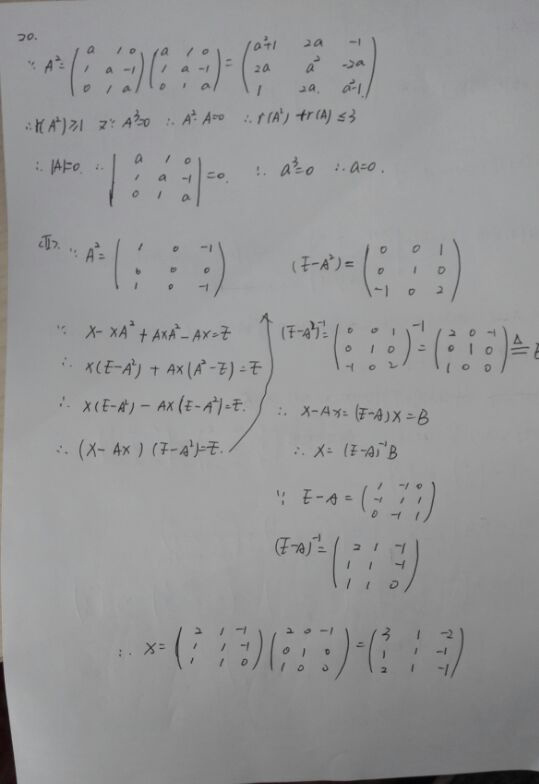 20.
∵ A²= (a 1 0; 1 a -1; 0 1 a) (a 1 0; 1 a -1; 0 1 a) = (a²+1 2a -1; 2a a² -2a; 1 2a a²-1)
∴ r(A²)≥1 又∵ A³=0 ∴ A²·A=0 ∴ r(A²)+r(A)≤3
∴ |A|=0 ∴ |a 1 0; 1 a -1; 0 1 a| =0. ∴ a³=0 ∴ a=0.
(Ⅱ). ∵ A²= (1 0 -1; 0 0 0; 1 0 -1)
(E-A²)= (0 0 1; 0 1 0; -1 0 2)
∵ X-XA²+AXA²-AX=E
∴ X(E-A²)+AX(A²-E)=E
∴ X(E-A²)-AX(E-A²)=E.
∴ (X-AX)(E-A²)=E.
(E-A²)⁻¹= (0 0 1; 0 1 0; -1 0 2)⁻¹ = (2 0 -1; 0 1 0; 1 0 0) ≜
∴ X-AX=(E-A)X=B
∴ X=(E-A)⁻¹B
∵ E-A= (1 -1 0; -1 1 1; 0 -1 1)
(E-A)⁻¹= (2 1 -1; 1 1 -1; 1 1 0)
∴ X= (2 1 -1; 1 1 -1; 1 1 0) (2 0 -1; 0 1 0; 1 0 0) = (3 1 -2; 1 1 -1; 2 1 -1)